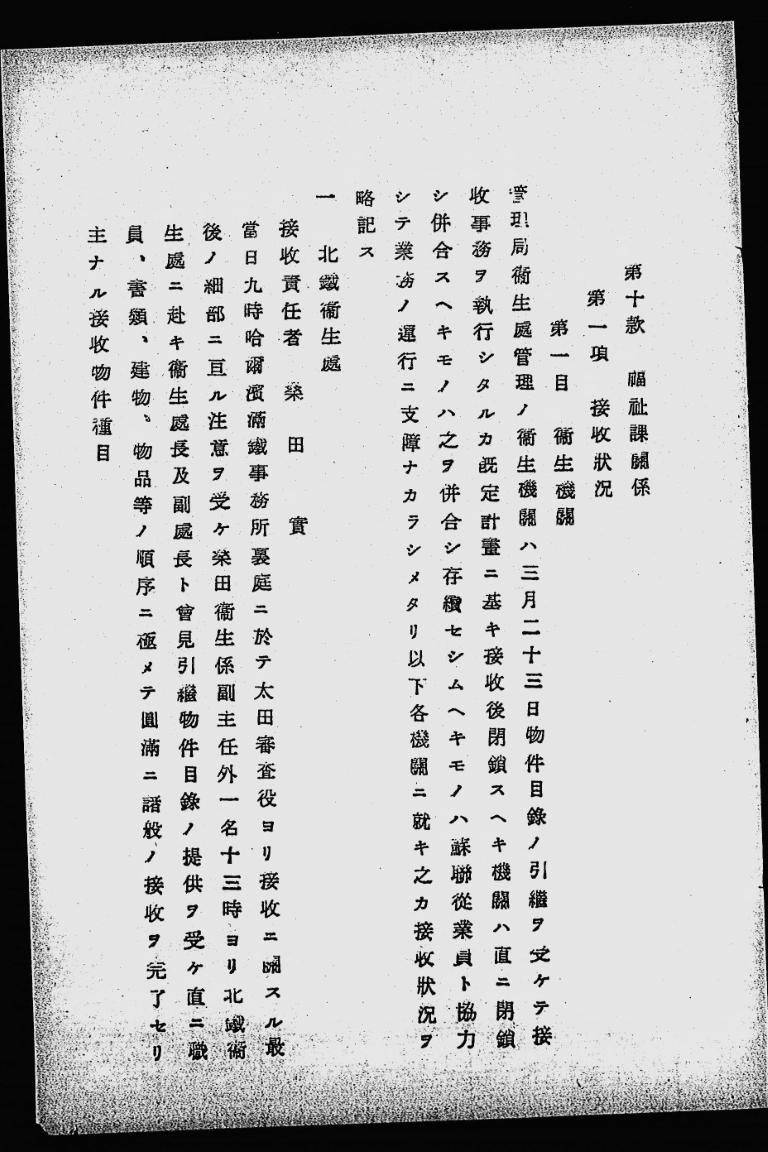 第十款　福祉課關係
第一項　接收狀況
第一目　衞生機關
管理局衞生處管理ノ衞生機關ハ三月二十三日物件目錄ノ引繼ヲ受ケテ接
收事務ヲ執行シタルカ既定計畫ニ基キ接收後閉鎖スヘキ機關ハ直ニ閉鎖
シ併合スヘキモノハ之ヲ併合シ存續セシムヘキモノハ蘇聯從業員ト協力
シテ業務ノ運行ニ支障ナカラシメタリ以下各機關ニ就キ之カ接收狀況ヲ
略記ス
一　北鐵衞生處
接收責任者　榮田　實
當日九時哈爾濱滿鐵事務所裏庭ニ於テ太田審査役ヨリ接收ニ關スル最
後ノ細部ニ亘ル注意ヲ受ケ榮田衞生係副主任外一名十三時ヨリ北鐵衞
生處ニ赴キ衞生處長及副處長ト會見引繼物件目錄ノ提供ヲ受ケ直ニ職
員、書類、建物、物品等ノ順序ニ極メテ圓滿ニ諸般ノ接收ヲ完了セリ
主ナル接收物件種目